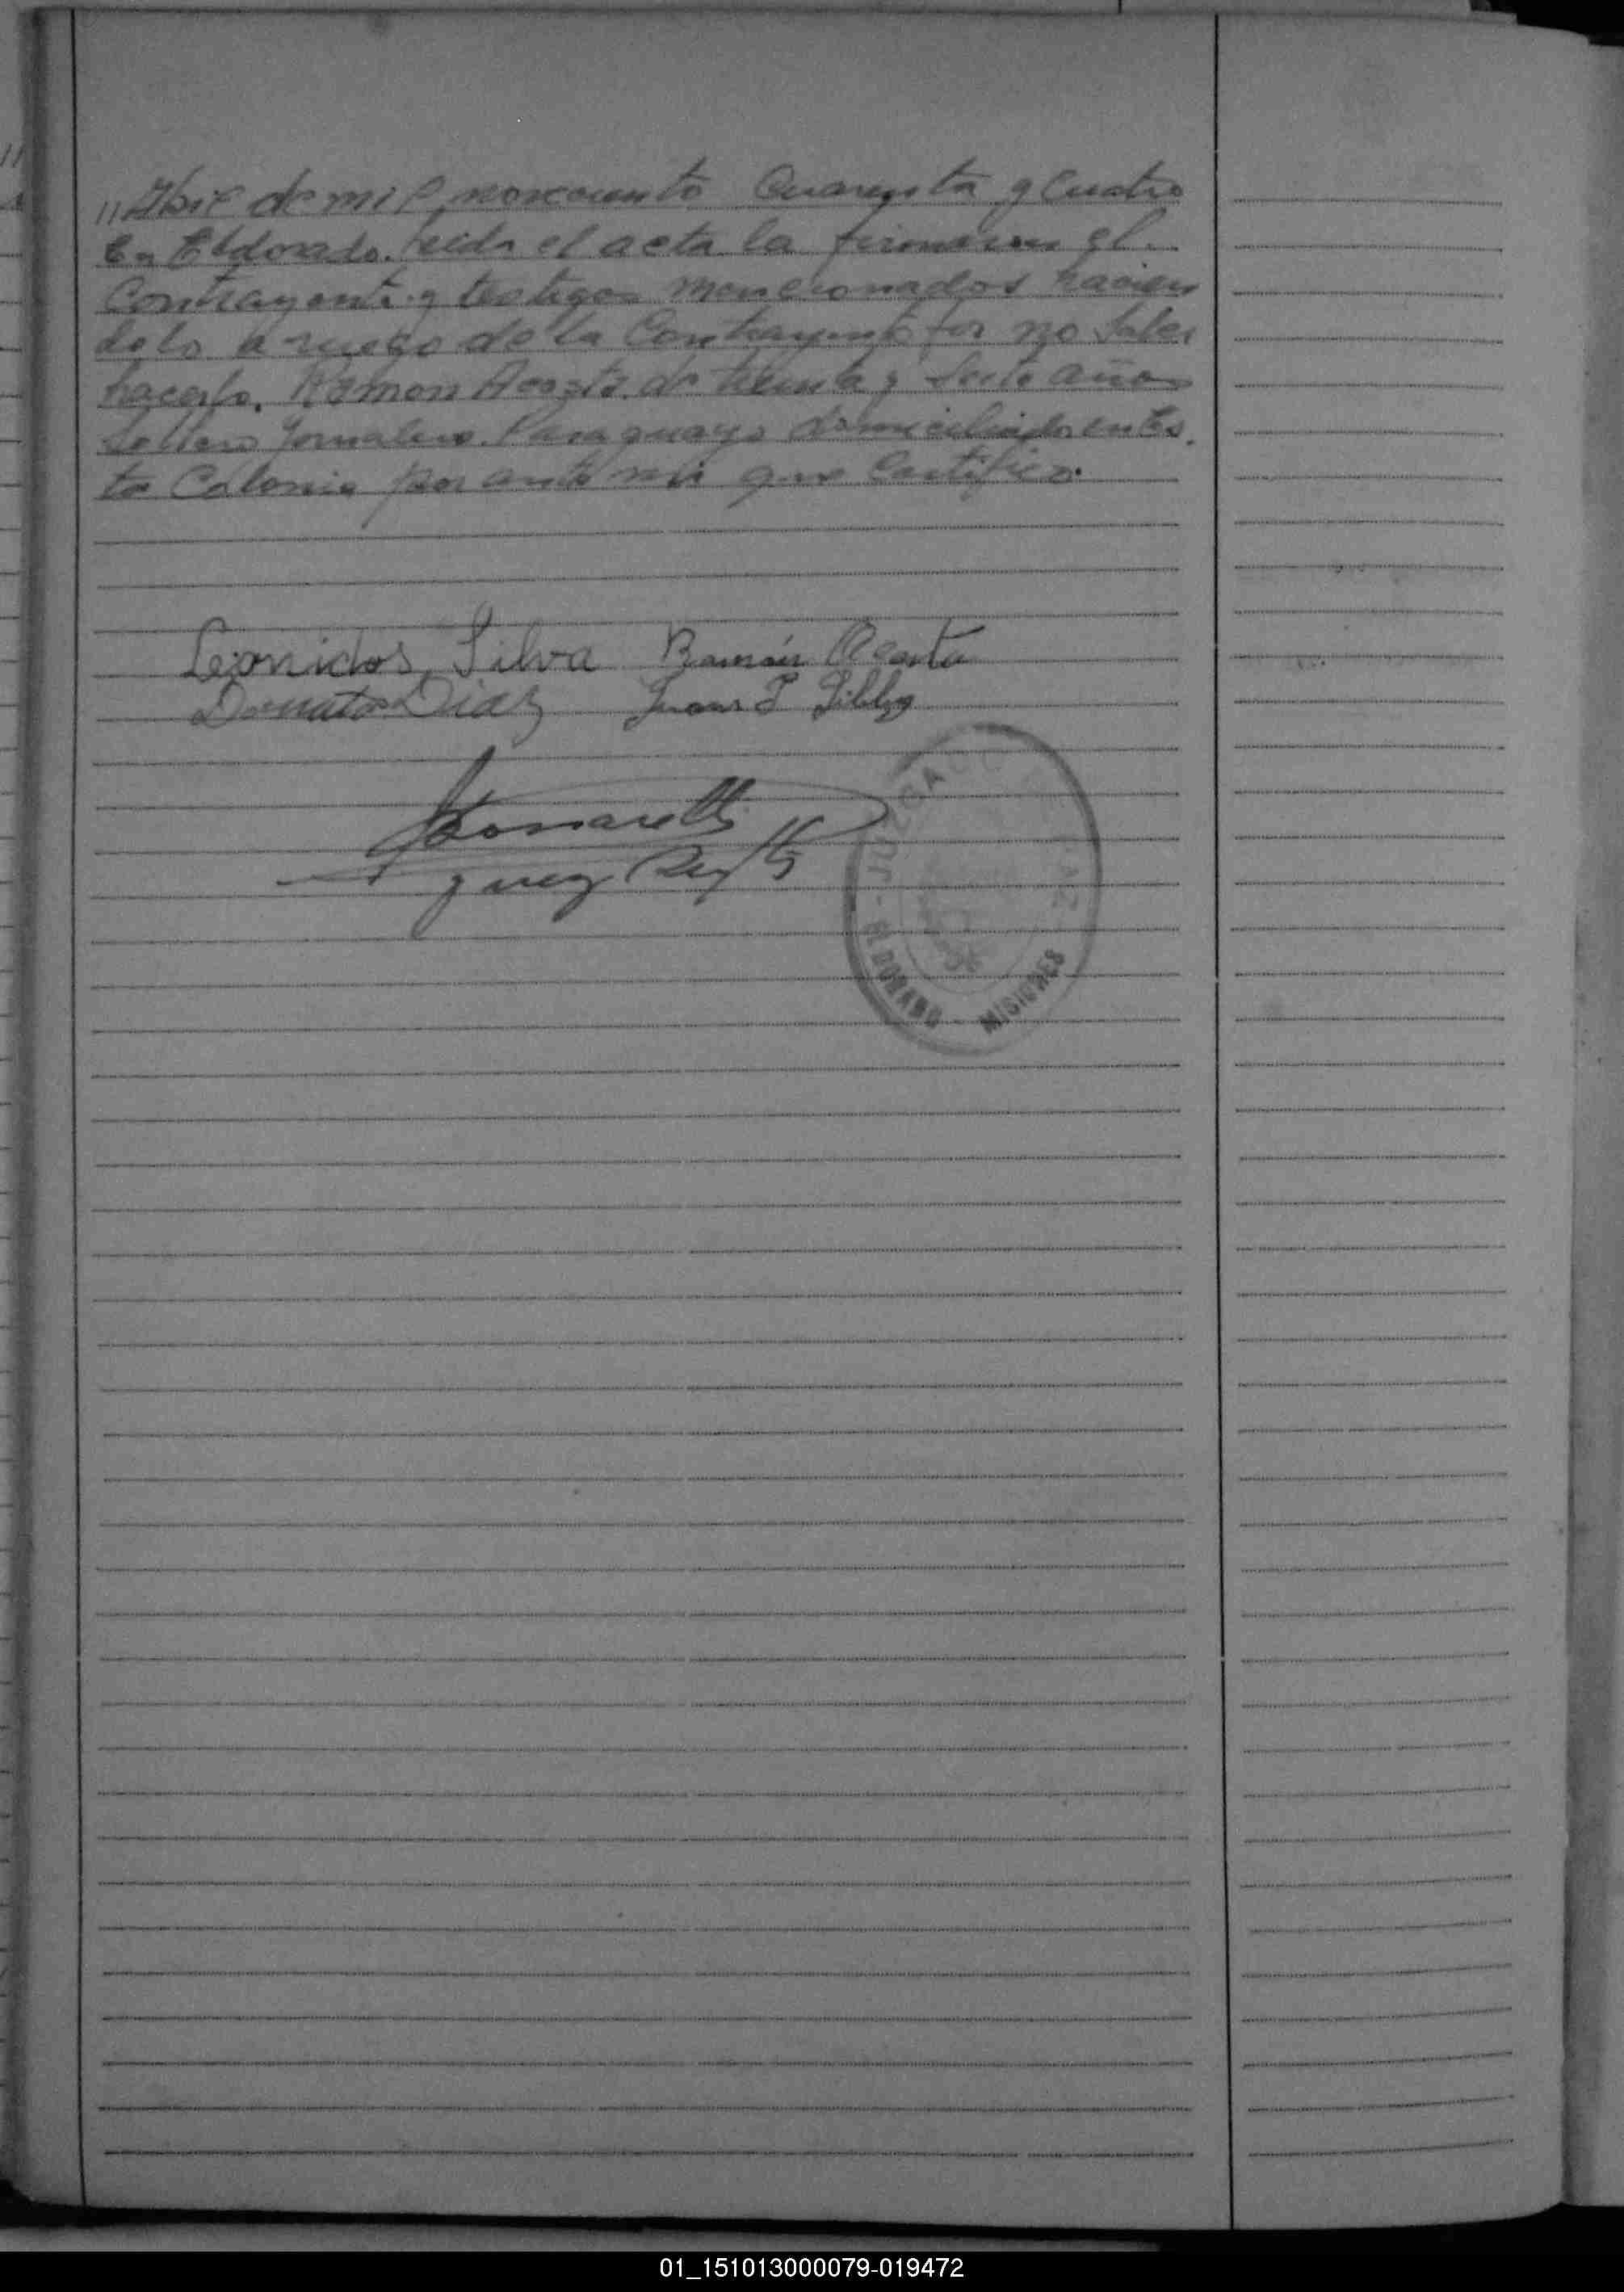 // Abril de mil noveciento Cuarenta y Cuatro
En Eldorado. Leida el acta la firmaron el.
Contrayente y testigos mencionados hacien
dolo a ruego de la Contrayente por no saber
hacerlo. Ramon Acosta de treinta y siete años
soltero Jornalero. Paraguayo domiciliado en es.
ta Colonia por ante mi que Certifico.
Leonidos Silva Ramón Acosta
Donato Diaz Juan P
Juez
JUZGA PAZ
ELDORADO - MISIONES
01_151013000079-019472